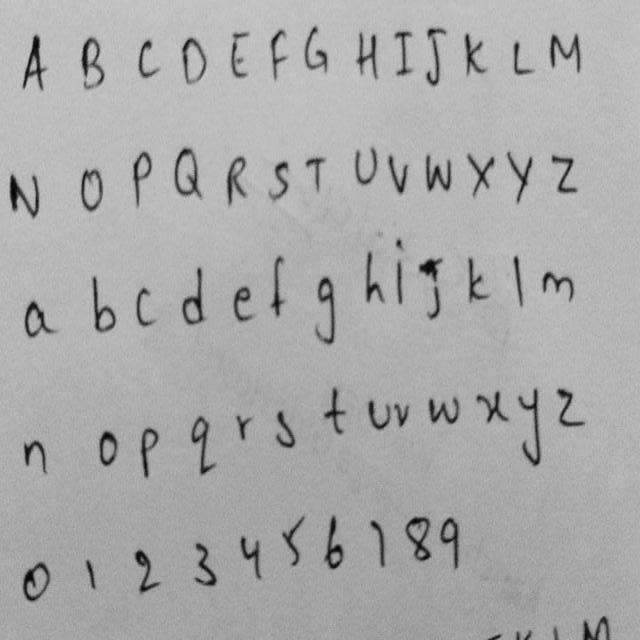 A B C D E F G H I J K L M
N O P Q R S T U V W X Y Z
a b c d e f g h i j k l m
n o p q r s t u v w x y z
0 1 2 3 4 5 6 7 8 9
K L M